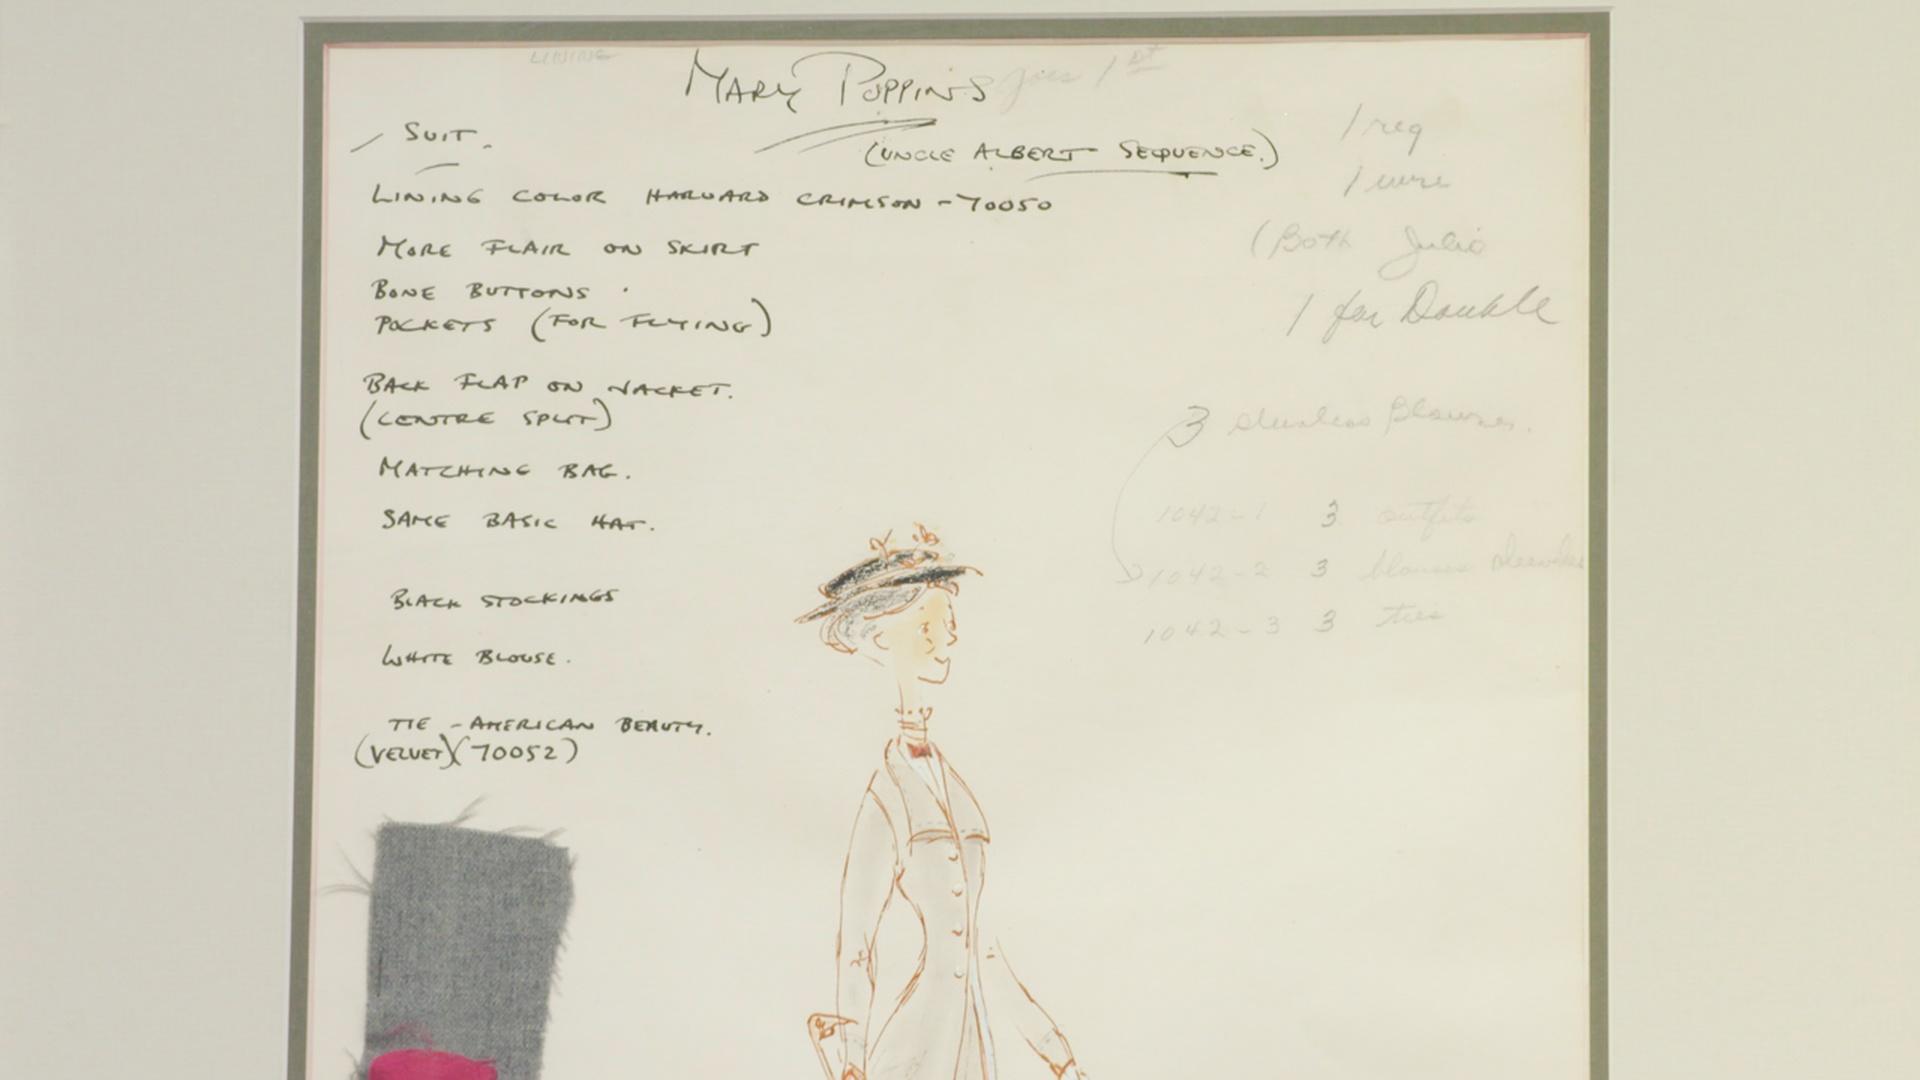 LINING
MARY POPPINS Joes 1st
SUIT.
(UNCLE ALBERT SEQUENCE.)
LINING COLOR HARVARD CRIMSON - 70050
MORE FLAIR ON SKIRT
BONE BUTTONS.
POCKETS (FOR FLYING)
BACK FLAP ON JACKET.
(CENTRE SPLIT)
MATCHING BAG.
SAME BASIC HAT.
BLACK STOCKINGS
WHITE BLOUSE.
TIE - AMERICAN BEAUTY.
(VELVET)(70052)
1 reg
1 wire
(Both Julie
1 for Double
3 sleeveless Blouses.
1042-1 3 outfits
1042-2 3 blouses sleeveless
1042-3 3 ties